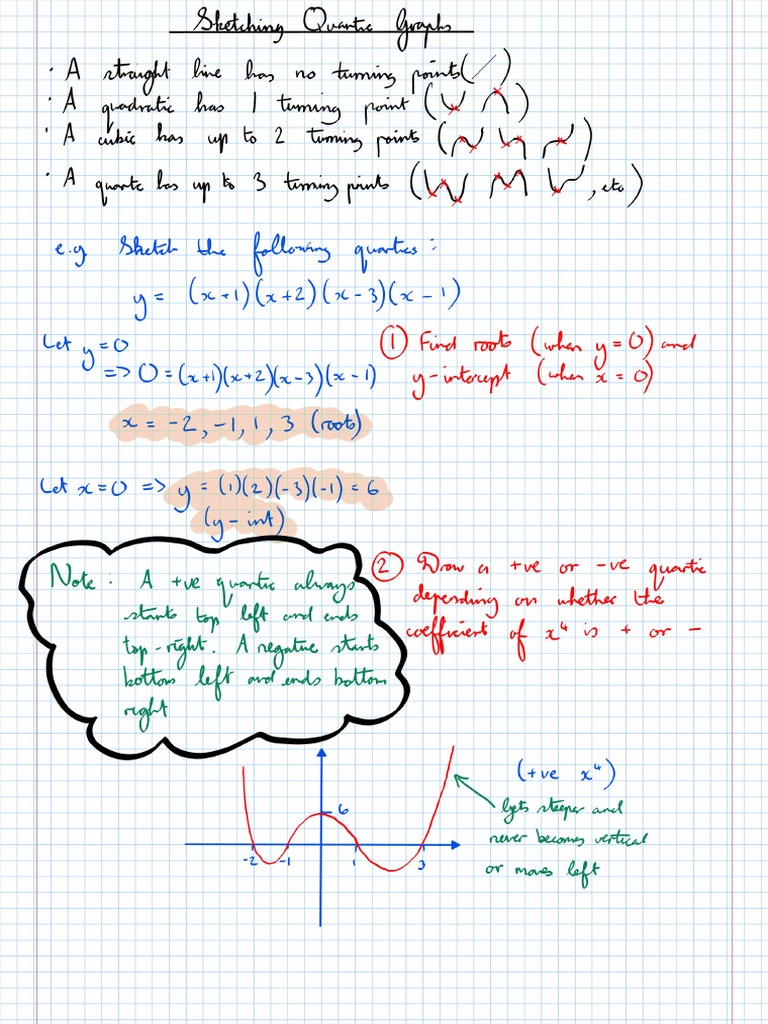 Sketching Quartic Graphs
· A straight line has no turning points ( )
· A quadratic has 1 turning point ( )
· A cubic has up to 2 turning points ( )
· A quartic has up to 3 turning points ( , etc)
e.g. Sketch the following quartics:
y = (x+1)(x+2)(x-3)(x-1)
Let y=0
=> 0=(x+1)(x+2)(x-3)(x-1)
x = -2, -1, 1, 3 (roots)
① Find roots (when y=0) and
y-intercept (when x=0)
Let x=0 => y = (1)(2)(-3)(-1) = 6
(y-int)
Note: A +ve quartic always
starts top left and ends
top-right. A negative starts
bottom left and ends bottom
right
② Draw a +ve or -ve quartic
depending on whether the
coefficient of x⁴ is + or -
6
-2 -1 1 3
(+ve x⁴)
steeper and
never becomes vertical
or moves left